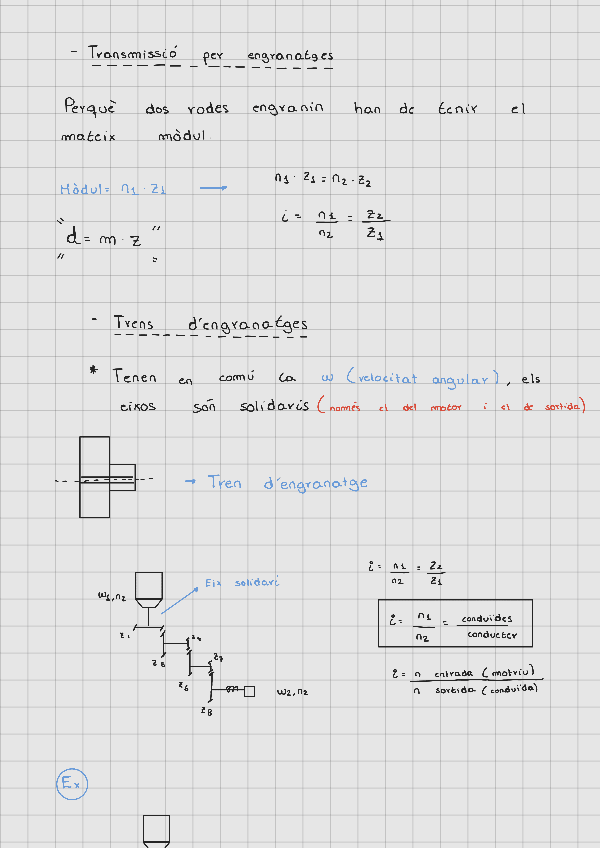 - Transmissió per engranatges
Perquè dos rodes engranin han de tenir el
mateix mòdul
Mòdul = n1 · Z1 →
n1 · Z1 = n2 · Z2
i = n1/n2 = Z2/Z1
" d = m · z "
- Trens d'engranatges
* Tenen en comú la ω (velocitat angular), els
eixos són solidaris (només el del motor i el de sortida)
→ Tren d'engranatge
i = n1/n2 = Z2/Z1
Eix solidari
ω1, n2
i = n1/n2 = conduïdes/conducter
Z1
Z6
Z7
Z6
i = n entrada (motriu)/n sortida (conduïda)
ω2, n2
Z8
Ex